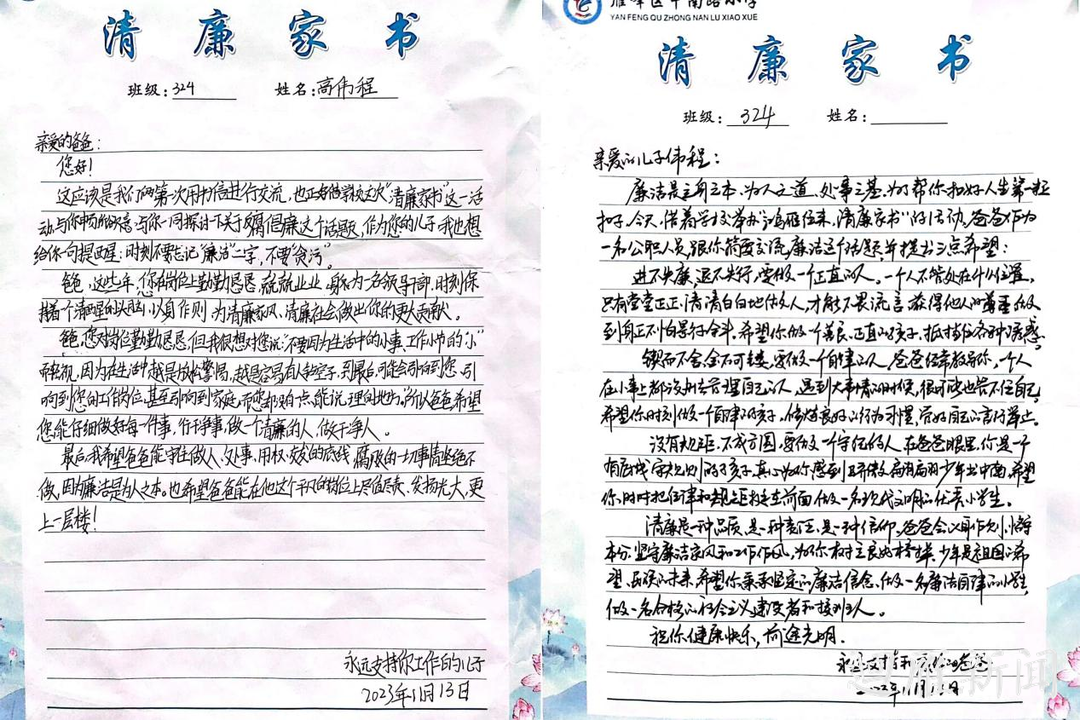 清廉家书
班级：324 姓名：高伟程
亲爱的爸爸：
您好！
这应该是我们俩第一次用书信进行交流，也正好借学校这次“清廉家书”这一活
动与你书面的形式与你一同探讨下关于反腐倡廉这个话题，作为您的儿子，我也想
给你一句提醒：时刻不要忘记“廉洁”二字，不要“贪污”。
爸爸，这些年，您在岗位上勤勤恳恳，兢兢业业，身为一名领导干部，时刻保
持着一个清醒的头脑，以身作则，为清廉家风、清廉社会做出你的更大贡献。
爸爸，您对岗位勤勤恳恳，但我很想对您说：“不要因为生活中的小事、工作小节的‘小’
而轻视，因为在生活中越是放松警惕，越是容易有人钻空子，到最后可能会影响到您，引
响到您的工作岗位，甚至引响到家庭，而您却没有一点能说理的地方。”所以爸爸希望
您能仔细做好每一件事，行干净事，做一个清廉的人，做干净人。
最后，我希望爸爸能守住做人、处事、用权、交友的底线，腐败的一切事情坚绝不
做，因为廉洁是为人之本。也希望爸爸能在他这个平凡的岗位上尽值尽责、发扬光大，更
上一层楼！
永远支持你工作的儿子
2023年11月13日
YAN FENG QU ZHONG NAN LU XIAO XUE
清廉家书
班级：324 姓名：
亲爱的儿子伟程：
廉洁是立身之本、为人之道、处事之基。为了帮你扣好人生第一粒
扣子，今天，借着学校举办“鸿雁传来，清廉家书”的活动，爸爸作为
一名公职人员，跟你简要交流廉洁这个话题，并提出三点希望：
进不失廉，退不失行，要做一个正直的人。一个人不管处在什么位置，
只有堂堂正正、清清白白地做人，才能不畏流言，获得他人的尊重，做
到身正不怕影斜。希望你做一个善良、正直的孩子，抵挡住各种诱惑。
锲而不舍，金石可镂，要做一个自律的人。爸爸经常教导你，一个人
在小事上都没办法管理自己的人，遇到大事情的时候，很可能也管不住自己。
希望你时刻做一个自律的孩子，保持良好的行为习惯，管好自己的言行举止。
没有规矩，不成方圆，要做一个守纪的人。在爸爸眼里，你是一个
希望
本分，坚守廉洁家风和工作作风，为你树立良好榜样。少年是祖国的希
望、民族的未来，希望你秉承坚定的廉洁信念，做一名廉洁自律的小学生，
做一名合格的社会主义建设者和接班人。
祝你健康快乐，前途光明。